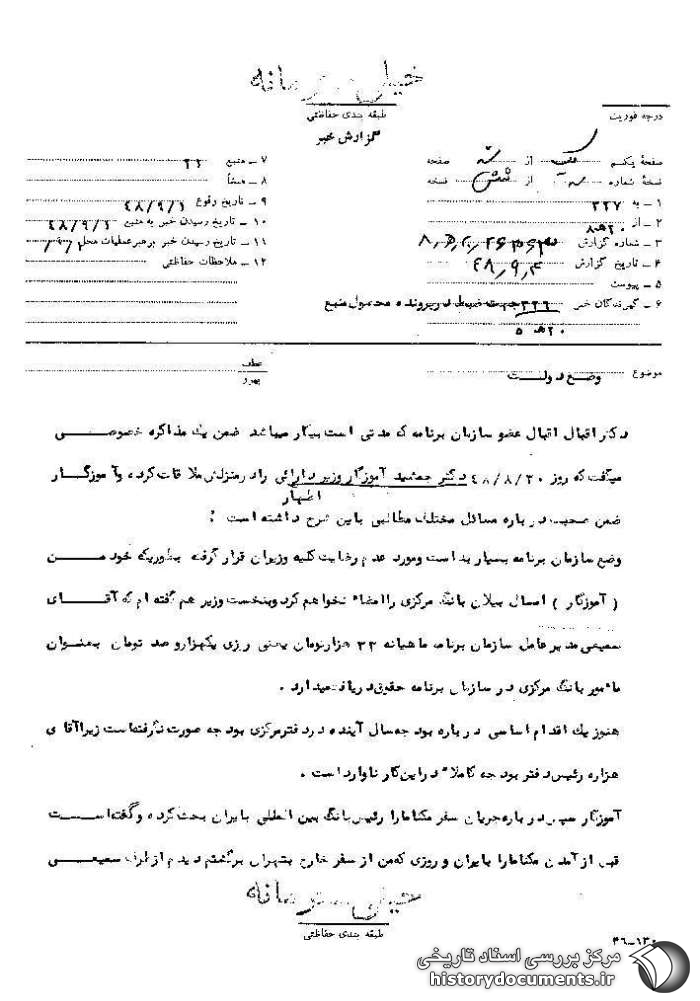 خیلی محرمانه
طبقه بندی حفاظتی
گزارش خبر
درجه فوریت
صفحهٔ یکم از صفحه
نسخهٔ شماره از شش نسخه
۱ – به ۳۳۷
۲ – از ۲۰ه۸
۳ – شماره گزارش
۴ – تاریخ گزارش ۴۸٫۹٫۴
۵ – پیوست
۶ – گیرندگان خبر ۳۲۶ جهت ضبط در پرونده محمول منبع
۲۰ه۵
۷ – منبع
۸ – منشأ
۹ – تاریخ وقوع ۴۸/۹/۱
۱۰ – تاریخ رسیدن خبر به منبع ۴۸/۹/۱
۱۱ – تاریخ رسیدن خبر برهبر عملیات محل
۱۲ – ملاحظات حفاظتی
موضوع وضع دولت
عطف
پیرو
دکتر اقبال اقبال عضو سازمان برنامه که مدتی است بیکار میباشد ضمن یک مذاکره خصوصی
میگفت که روز ۴۸/۸/۳۰ دکتر جمشید آموزگار وزیر دارائی را در منزلش ملاقات کرده و آموزگار
ضمن صحبت درباره مسائل مختلف مطالبی باین شرح اظهار داشته است :
وضع سازمان برنامه بسیار بد است و مورد عدم رضایت کلیه وزیران قرار گرفته بطوریکه خود من
( آموزگار ) امسال بیلان بانک مرکزی را امضاء نخواهم کرد و بنخست وزیر هم گفته ام که آقای
سمیعی مدیر عامل سازمان برنامه ماهیانه ۳۳ هزار تومان یعنی روزی یکهزار و صد تومان بعنوان
مامور بانک مرکزی در سازمان برنامه حقوق دریافت میدارد .
هنوز یک اقدام اساسی درباره بودجه سال آینده در دفتر مرکزی بودجه صورت نگرفته است زیرا آقای
هزاره رئیس دفتر بودجه کاملاً در این کار ناوارد است .
آموزگار سپس درباره جریان سفر مکنامارا رئیس بانک بین المللی بایران بحث کرده و گفته است
قبل از آمدن مکنامارا بایران و روزی که من از سفر خارج بتهران برگشتم دیدم از طرف سمیعی
خیلی محرمانه
طبقه بندی حفاظتی
۴۶–۱۳۰
مرکز بررسی اسناد تاریخی
historydocuments.ir